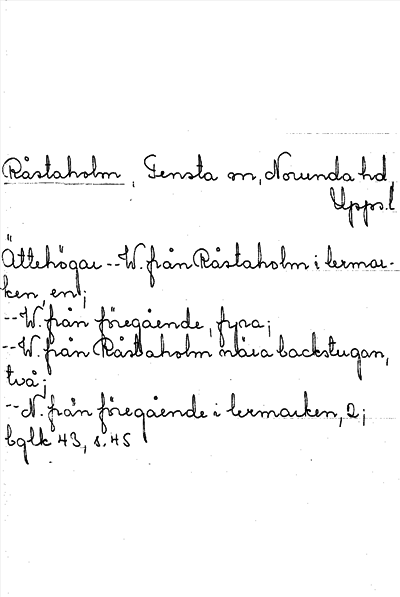 Råstaholm, Tensta sn, Norunda hd,
Upps.l
Ättehögar -- W. från Råstaholm i lermar-
ken, en;
-- W. från föregående, fyra;
-- W. från Råstaholm nära backstugan,
två;
-- N. från föregående i lermarken, 2;
bglk 43, s. 45